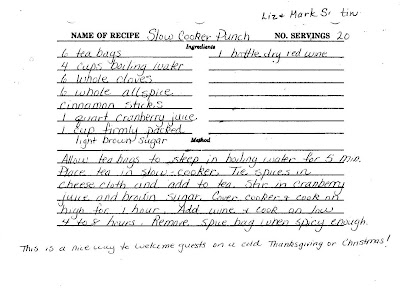 Liz & Mark
NAME OF RECIPE Slow Cooker Punch NO. SERVINGS 20
Ingredients
6 tea bags 1 bottle dry red wine
4 cups boiling water
6 whole cloves
6 whole allspice
cinnamon sticks
1 quart cranberry juice
1 cup firmly packed
light brown sugar
Method
Allow tea bags to steep in boiling water for 5 min.
Place tea in slow-cooker. Tie spices in
cheese cloth and add to tea. Stir in cranberry
juice and brown sugar. Cover cooker & cook on
high for 1 hour. Add wine & cook on low
4 to 8 hours. Remove spice bag when spicy enough.
This is a nice way to welcome guests on a cold Thanksgiving or Christmas!